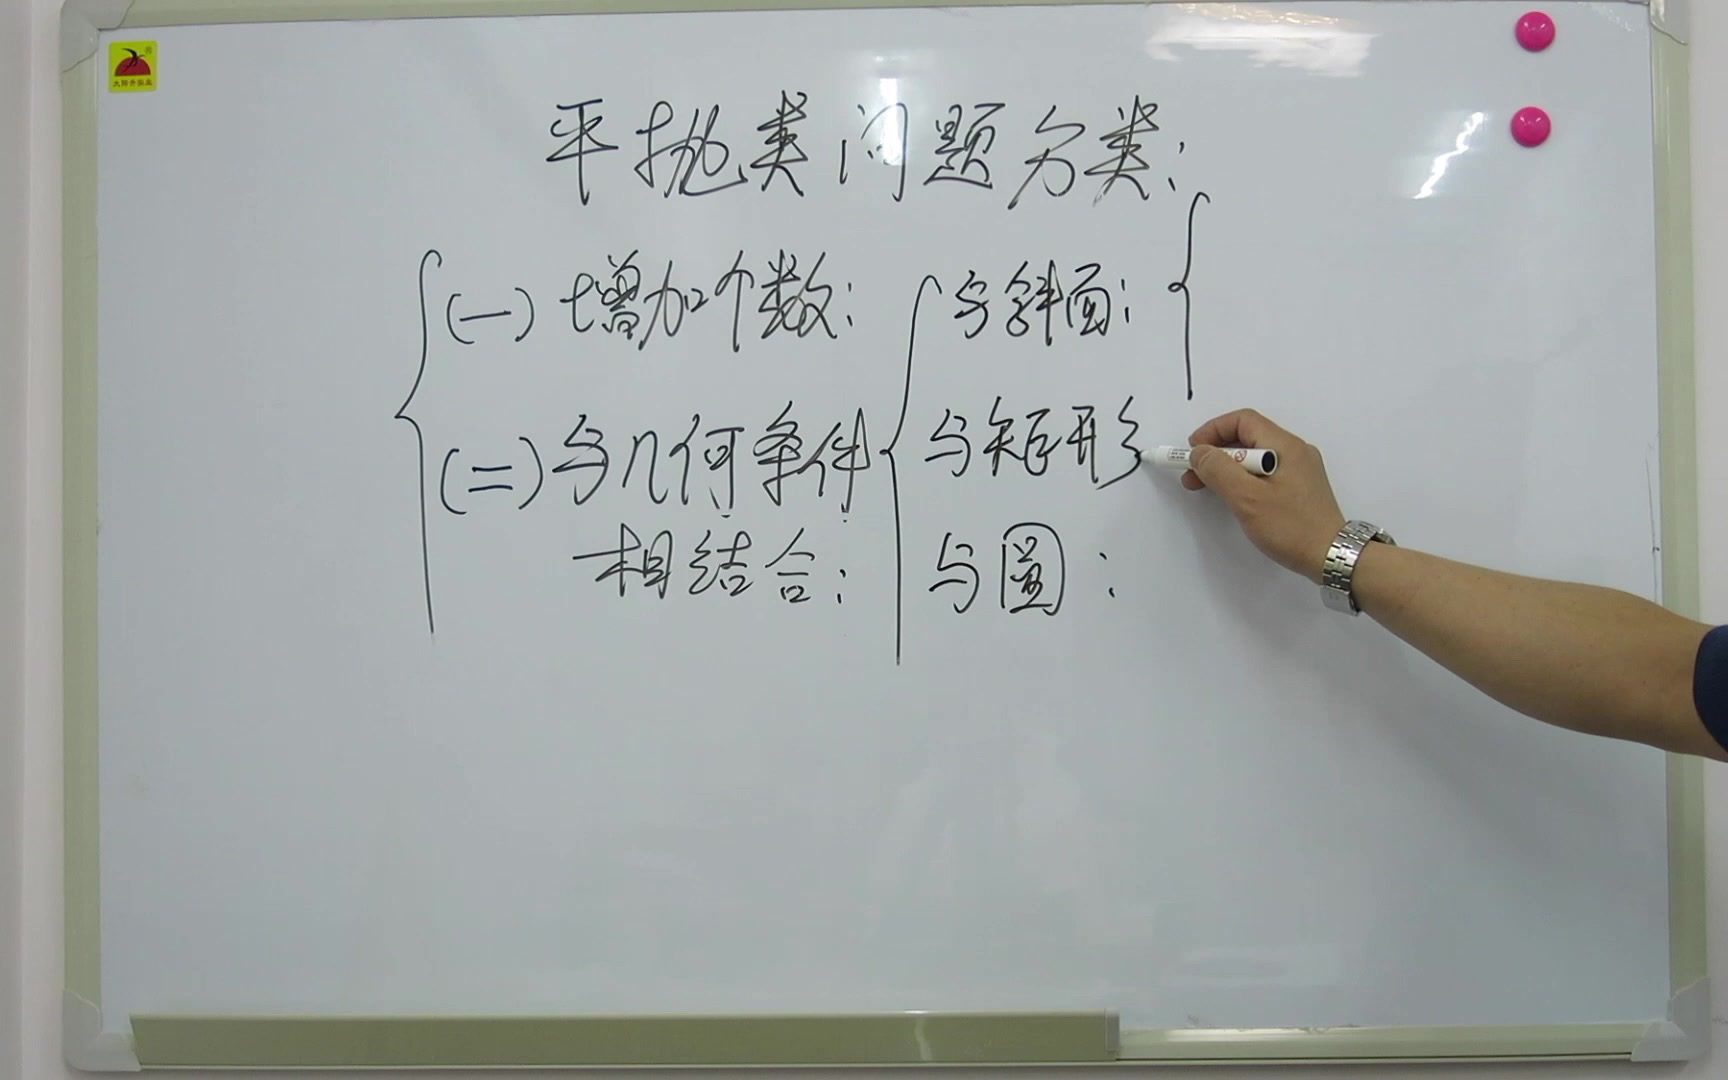 平抛类问题分类:
(一)增加个数:
与斜面:
(二)与几何条件
相结合:
与矩形
与圆: